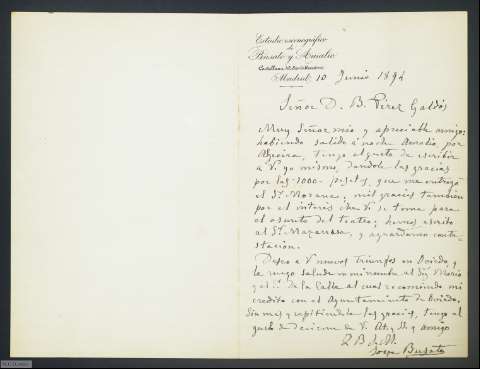 Estudio escenográfico
de
Busato y Amalio
Madrid 10 Junio 1894
Señor D. B. Pérez Galdós
Muy Señor mio y apreciable amigo:
habiendo salido á noche Amalio por
tengo el gusto de escribir
á V. yo mismo, dandole las gracias
por las 1000 pesetas, que me entregó
el Sr. Moreno; mil gracias tambien
por el interés che V. se toma para
el asunto del teatro; hemos escrito
al Sr. Mazarrasa, y aguardamos conte-
stacion.
Deseo a V nuevos triunfos en Oviedo, y
le ruego salude en mi nombre al Sr. Mario
y el Sr. de la Calle al cual recomiendo mi
credito con el Ayuntamiento de Oviedo,
sin mas y repitiendole las gracias, tengo el
gusto de decirme de V. At. SS. y amigo
Q B L M.
Jorge Busato